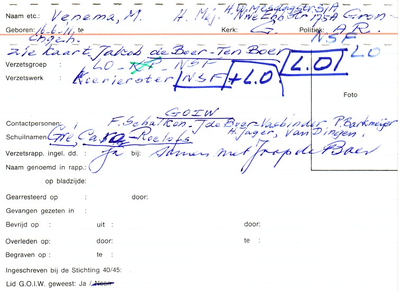 Naam etc.: Venema, M. H. Mej. H.W. Mesdagstr. 5A
Nwe Ebb Gron-
Geboren: te Kerk: G. Politiek: A.R.
NSF
Zie Kaart Jakob de Boer-Ten Boer L.O! LO
Verzetsgroep : LO - - NSF
Verzetswerk : Koerierster NSF + LO
Foto
GOIW
Contactpersonen: F. Scholten. J de Boer- P. Barkmeijer
Schuilnamen: Cara Roelofs H. Jager, van Dingen.
Verzetsrapp. ingel. dd. : ja bij: samen met Jaap de Boer
Naam genoemd in rapp.:
op bladzijde:
Gearresteerd op : door:
Gevangen gezeten in :
Bevrijd op : uit : door:
Overleden op: door: te :
Begraven op : te :
Ingeschreven bij de Stichting 40/45:
Lid G.O.I.W. geweest: Ja / Neen